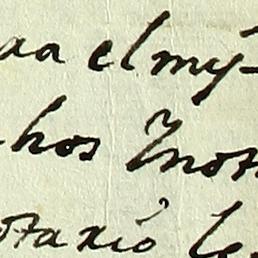 aa el my-
hos Mot
otaxió le